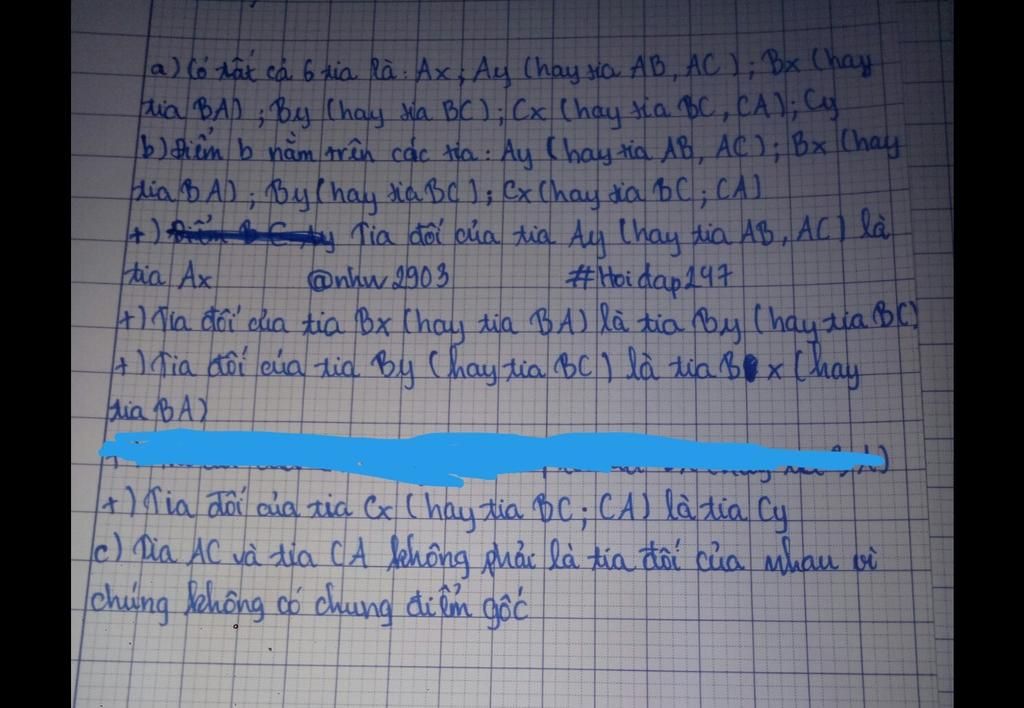 a) Có tất cả 6 tia là: Ax; Ay (hay tia AB, AC); Bx (hay
tia BA); By (hay tia BC); Cx (hay tia BC, CA); Cy
b) Điểm b nằm trên các tia: Ay (hay tia AB, AC); Bx (hay
tia BA); By (hay tia BC); Cx (hay tia BC; CA)
+) Tia đối của tia Ay (hay tia AB, AC) là
tia Ax @nhw2903 #Hoidap247
+) Tia đối của tia Bx (hay tia BA) là tia By (hay tia BC)
+) Tia đối của tia By (hay tia BC) là tia Bx (hay
tia BA)
+) Tia đối của tia Cx (hay tia BC; CA) là tia Cy
c) Tia AC và tia CA không phải là tia đối của nhau vì
chúng không có chung điểm gốc